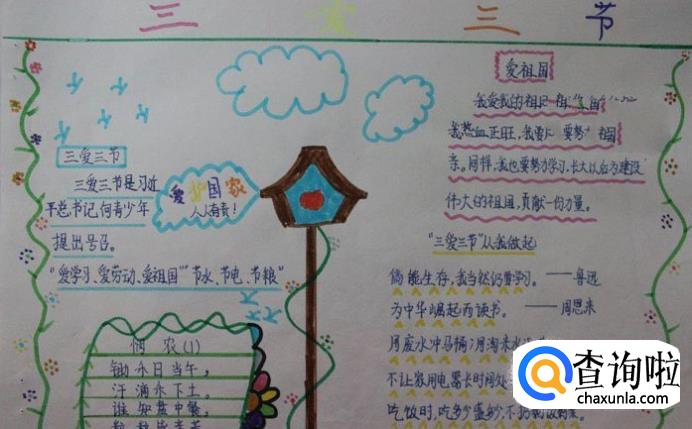 三爱三节
三爱三节
三爱三节是习近
平总书记向青少年
提出号召。
"爱学习、爱劳动、爱祖国""节水、节电、节粮"
爱护国家
人人有责！
悯农(1)
锄禾日当午，
汗滴禾下土。
谁知盘中餐，
爱祖国
我爱我的祖国
我热血正旺，我要努 祖国
亲。同样，我也要努力学习，长大以后为建设
伟大的祖国，贡献一份力量。
"三爱三节"从我做起
倘能生存，我当然仍要学习。——鲁迅
为中华崛起而读书。——周恩来
用废水冲马桶；用淘米水
不让家用电器长时间处
吃饭时，吃多少盛多少不扔剩饭剩菜。
查询啦
chaxunla.com